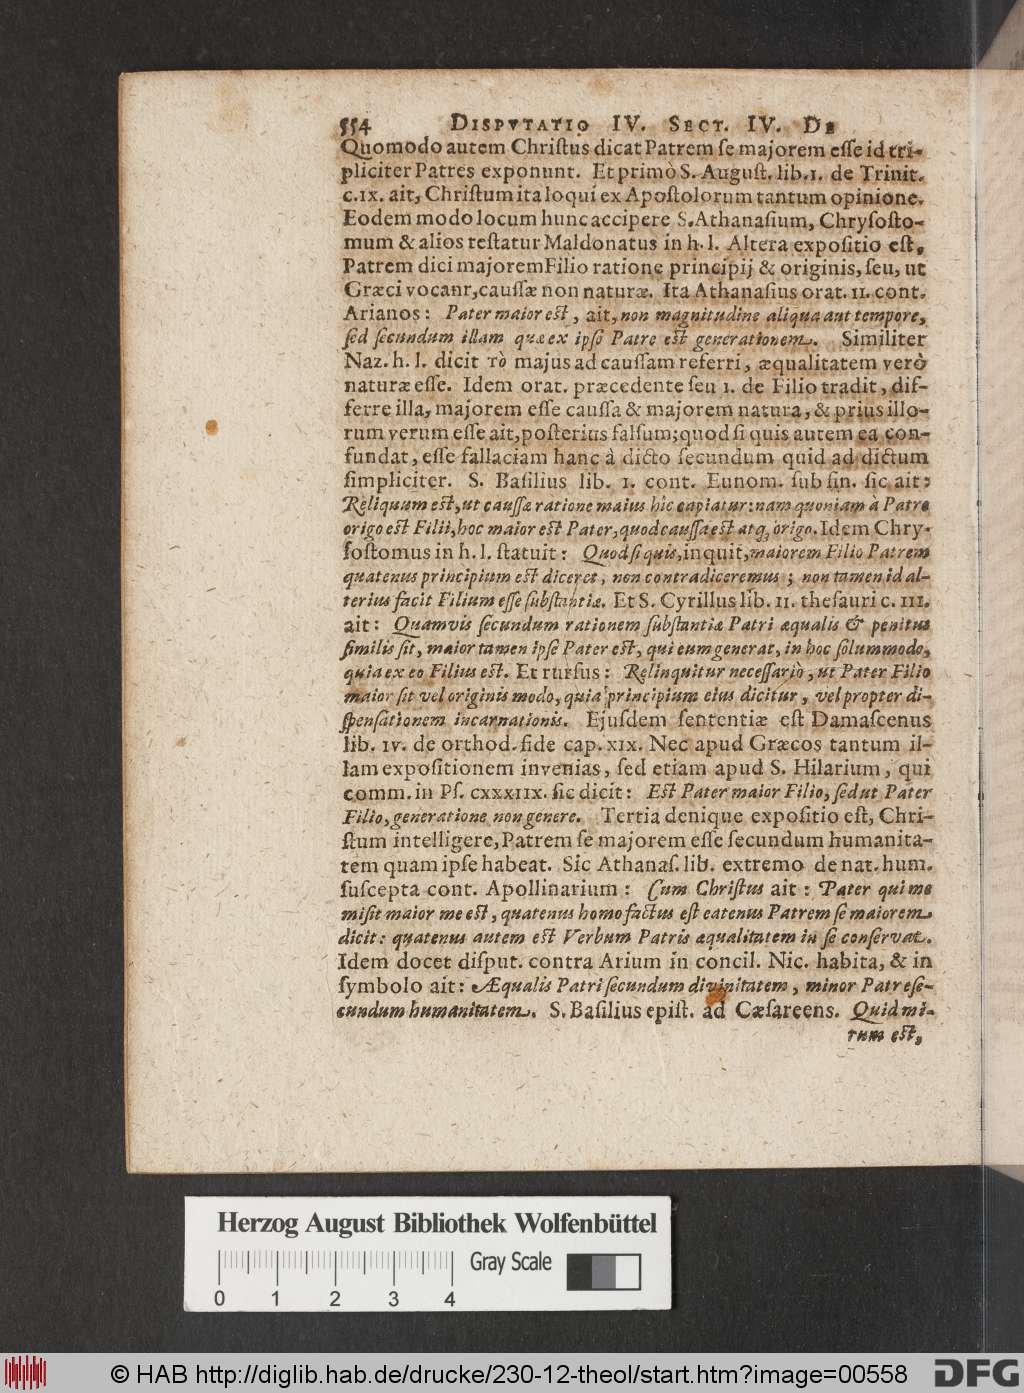 554 DISPVTATIO IV. SECT. IV. DE
Quomodo autem Chriſtus dicat Patrem ſe majorem eſſe id tri-
pliciter Patres exponunt. Et primò S. Auguſt. lib. 1. de Trinit.
c. IX. ait, Chriſtum ita loqui ex Apoſtolorum tantum opinione.
Eodem modo locum hunc accipere S. Athanaſium, Chryſoſto-
mum & alios teſtatur Maldonatus in h. l. Altera expoſitio eſt,
Patrem dici majorem Filio ratione principij & originis, ſeu, ut
Græci vocant, cauſſæ non naturæ. Ita Athanaſius orat. 11. cont.
Arianos: Pater maior eſt, ait, non magnitudine aliqua aut tempore,
ſed ſecundum illam quæ ex ipſo Patre eſt generationem. Similiter
Naz. h. l. dicit τὸ majus ad cauſſam referri, æqualitatem verò
naturæ eſſe. Idem orat. præcedente ſeu 1. de Filio tradit, dif-
ferre illa, majorem eſſe cauſſa & majorem natura, & prius illo-
rum verum eſſe ait, poſterius falſum; quod ſi quis autem ea con-
fundat, eſſe fallaciam hanc à dicto ſecundum quid ad dictum
ſimpliciter. S. Baſilius lib. 1. cont. Eunom. ſub fin. ſic ait:
Reliquum eſt, ut cauſſæ ratione maius hîc capiatur: nam quoniam à Patre
origo eſt Filii, hoc maior eſt Pater, quod cauſſa eſt atq; origo. Idem Chry-
ſoſtomus in h. l. ſtatuit: Quod ſi quis, inquit, maiorem Filio Patrem
quatenus principium eſt diceret, non contradiceremus; non tamen id al-
terius facit Filium eſſe ſubſtantiæ. Et S. Cyrillus lib. 11. theſauri c. III.
ait: Quamvis ſecundum rationem ſubſtantiæ Patri æqualis & penitus
ſimilis ſit, maior tamen ipſe Pater eſt, qui eum generat, in hoc ſolummodo,
quia ex eo Filius eſt. Et rurſus: Relinquitur neceſſariò, ut Pater Filio
maior ſit vel originis modo, quia principium eius dicitur, vel propter di-
ſpenſationem incarnationis. Ejuſdem ſententiæ eſt Damaſcenus
lib. IV. de orthod. fide cap. XIX. Nec apud Græcos tantum il-
lam expoſitionem invenias, ſed etiam apud S. Hilarium, qui
comm. in Pſ. CXXXIIX. ſic dicit: Eſt Pater maior Filio, ſed ut Pater
Filio, generatione non genere. Tertia denique expoſitio eſt, Chri-
ſtum intelligere, Patrem ſe majorem eſſe ſecundum humanita-
tem quam ipſe habeat. Sic Athanaſ. lib. extremo de nat. hum.
ſuſcepta cont. Apollinarium: Cum Chriſtus ait: Pater qui me
miſit maior me eſt, quatenus homo factus eſt eatenus Patrem ſe maiorem
dicit: quatenus autem eſt Verbum Patris æqualitatem in ſe conſervat.
Idem docet diſput. contra Arium in concil. Nic. habita, & in
ſymbolo ait: Æqualis Patri ſecundum divinitatem, minor Patre ſe-
cundum humanitatem. S. Baſilius epiſt. ad Cæſareens. Quid mi-
rum eſt,
Herzog August Bibliothek Wolfenbüttel
Gray Scale
0 1 2 3 4
© HAB http://diglib.hab.de/drucke/230-12-theol/start.htm?image=00558
DFG